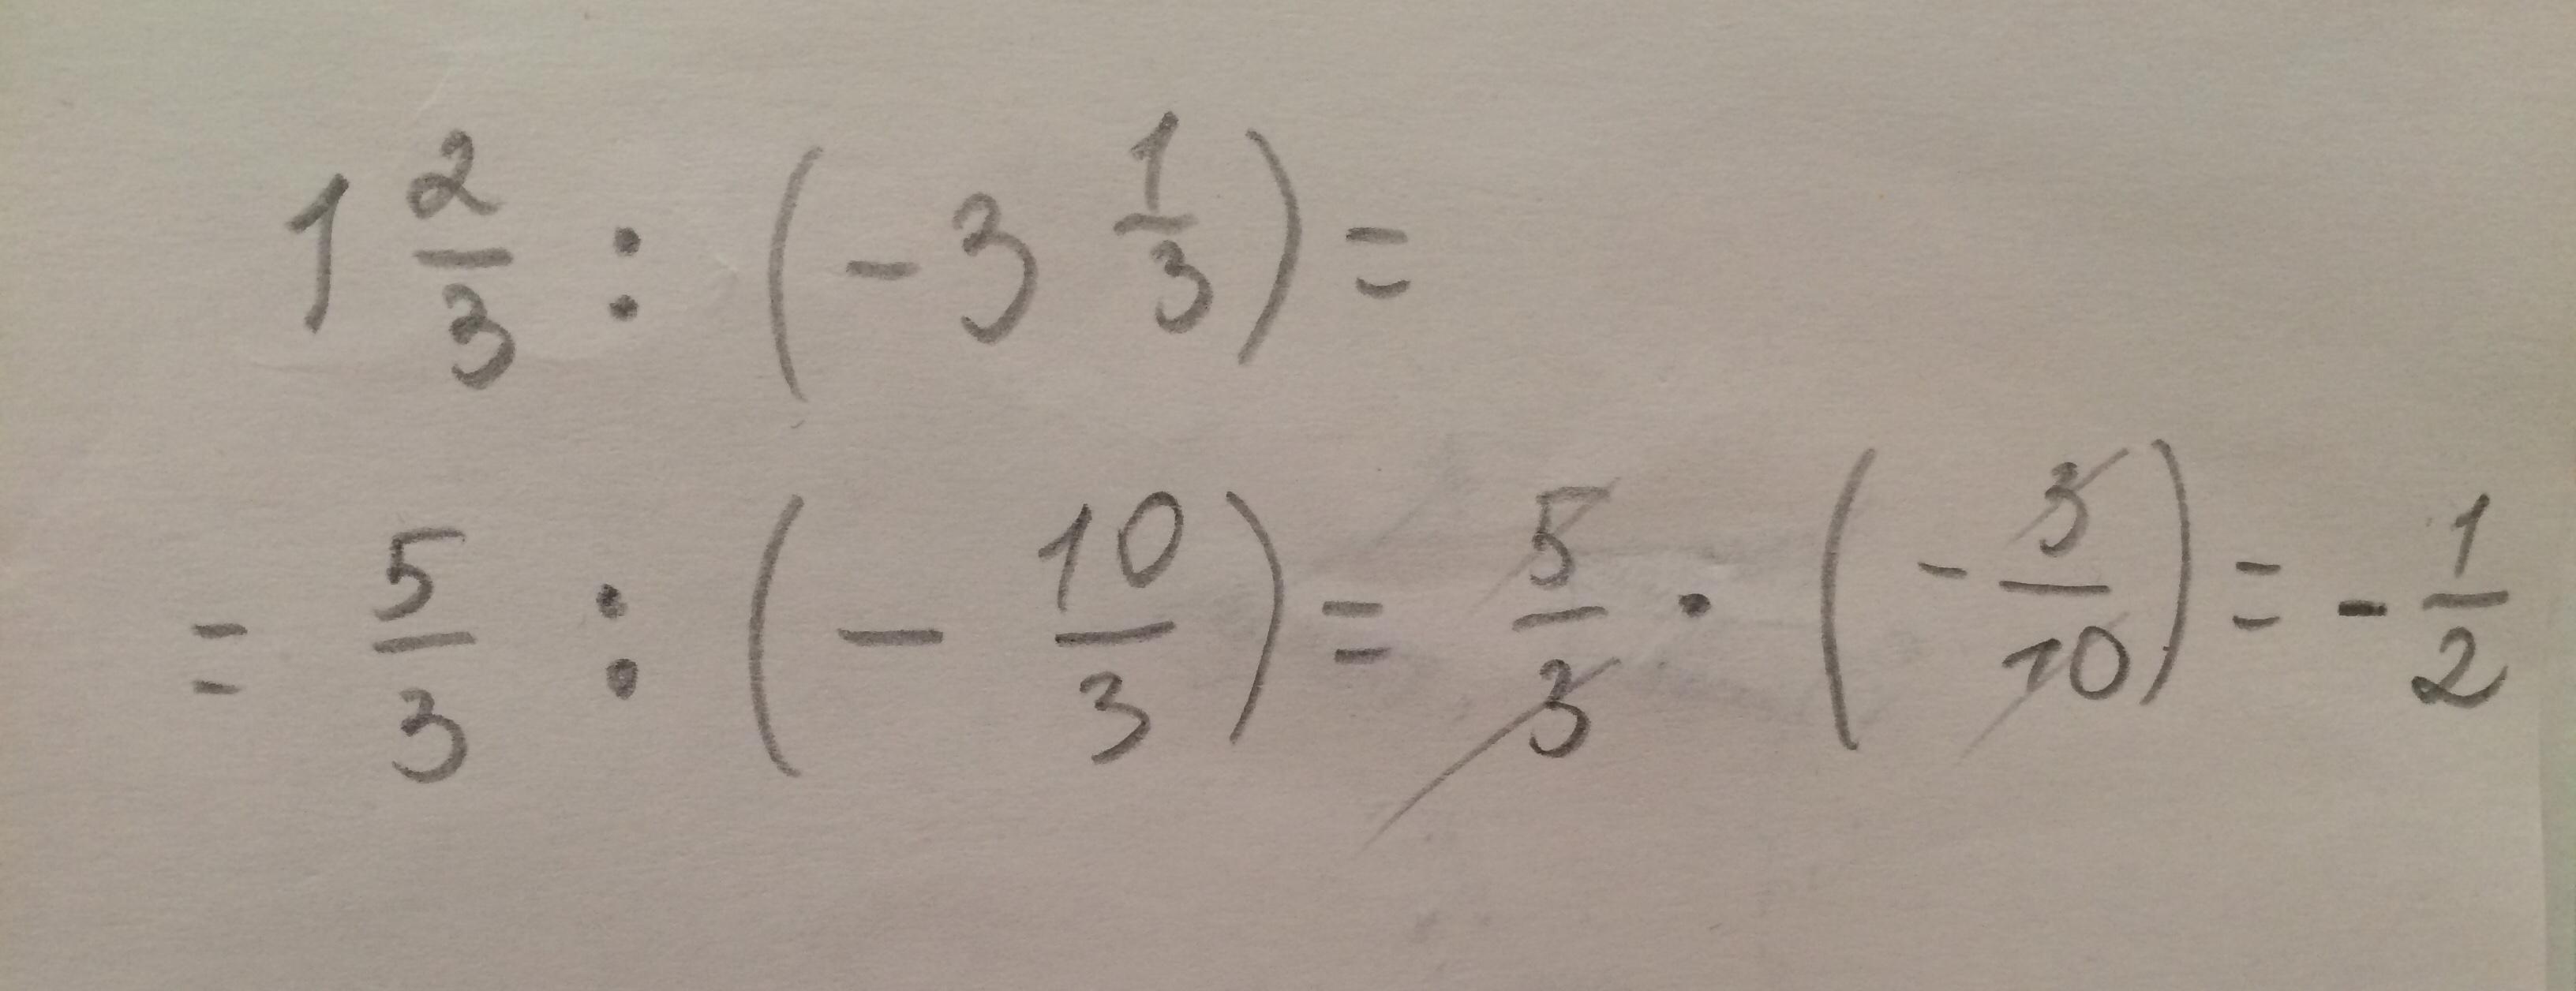 1 2/3 : (-3 1/3) =
= 5/3 : (- 10/3) = 5/3 · (- 3/10) = - 1/2